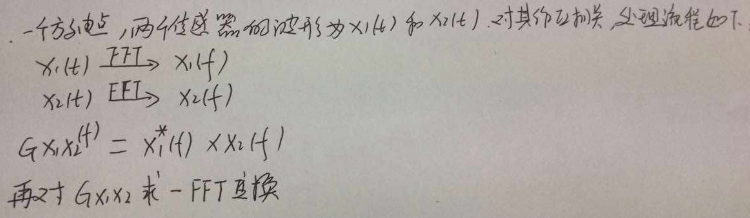 一个方向点,两个传感器的波形为x₁(t)和x₂(t).对其作互相关,处理流程如下.
x₁(t) FFT→ x₁(f)
x₂(t) FFT→ x₂(f)
Gx₁x₂(f) = x₁*(f) × x₂(f)
再对Gx₁x₂求一FFT变换